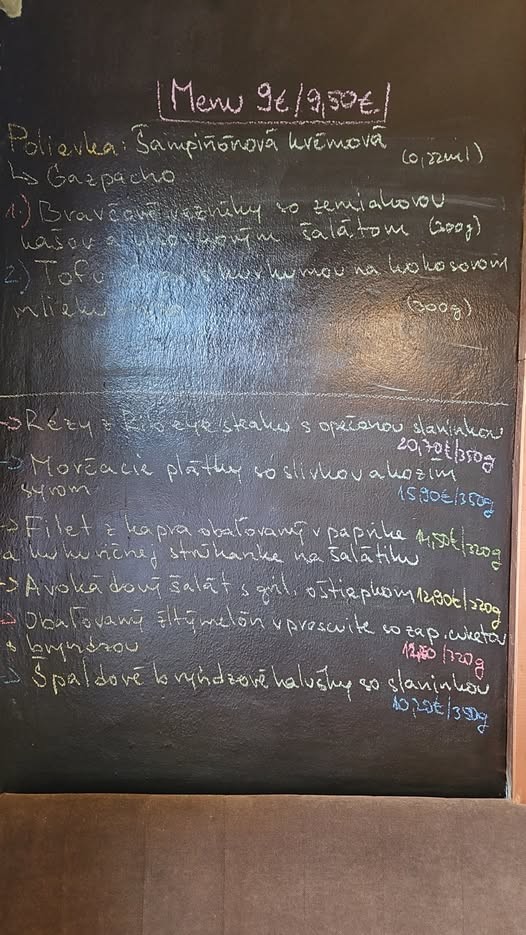 Menu 9€/9,50€
Polievka: Šampiňónová krémová
(0,22ml)
↳ Gazpacho
1.) Bravčové rezníky so zemiakovou
kašou a uhorkovým šalátom (300g)
2.) Tofu s kurkumou na kokosovom
mlieku (300g)
→ Rezy z Rib eye steaku s opečenou slaninkou
20,70€/350g
→ Morčacie plátky so slivkov a kozím
syrom 15,90€/350g
→ Filet z kapra obaľovaný v paprike 14,50€/320g
a kukuričnej strúhanke na šalátiku
→ Avokádový šalát s gril. oštiepkom 12,90€/320g
→ Obaľovaný žltý melón v prosciute so zap. cuketou
s bryndzou /320g
→ Špaldové bryndzové halušky so slaninkou
10,20€/350g